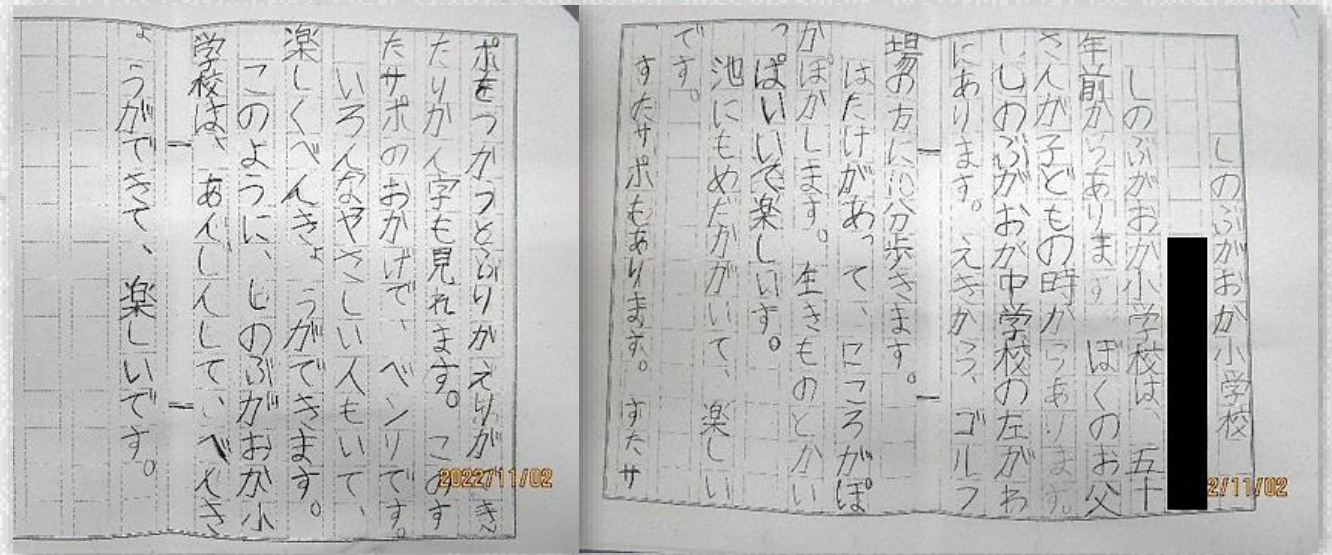 しのぶがおか小学校
しのぶがおか小学校は、五十
年前からあります。ぼくのお父
さんが子どもの時からあります。
しのぶがおか中学校の左がわ
にあります。えきから、ゴルフ
場の方に10分歩きます。
はたけがあって、にころがぽ
かぽかします。生きものとかい
っぱいいて楽しいす。
池にもめだかがいて、楽しい
です。
すたサポもあります。すたサ
ポをつかうとふりがえりができ
たりかん字も見れます。このす
たサポのおかげで、ベンリです。
いろんなやさしい人もいて、
楽しくべんきょうができます。
このように、しのぶがおか小
学校は、あんしんしてい、べんき
ょうができて、楽しいです。
2022/11/02
2/11/02